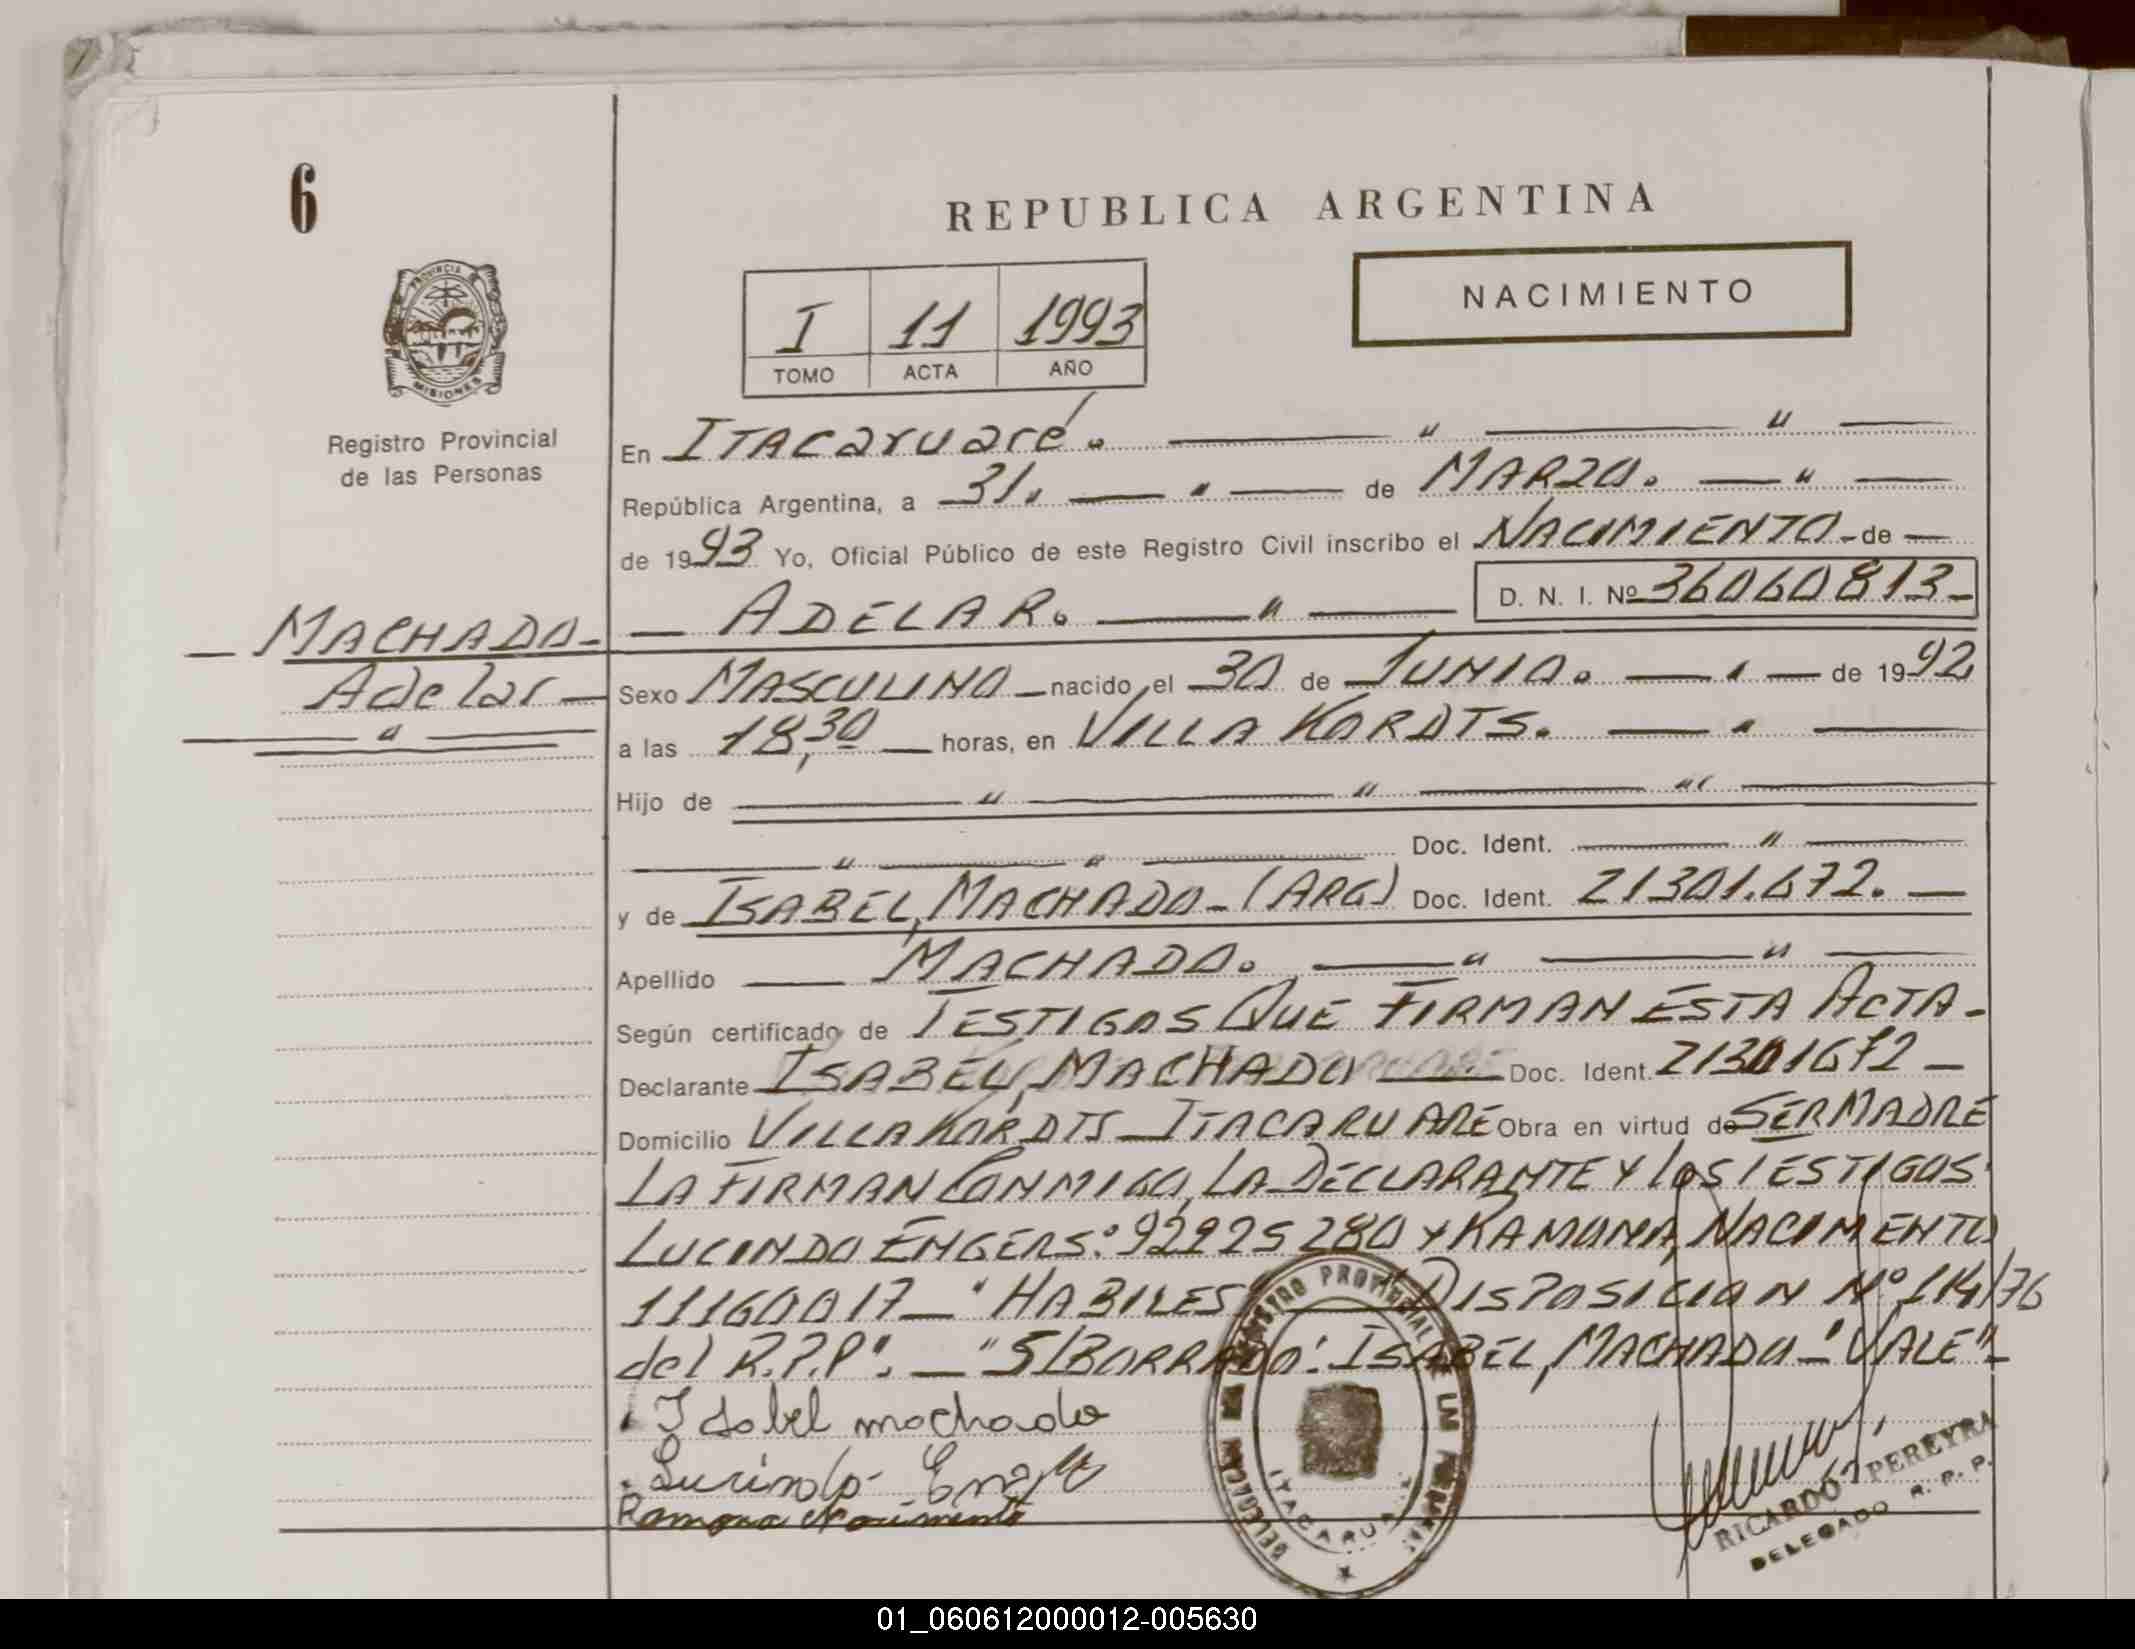 6
REPUBLICA ARGENTINA
NACIMIENTO
I 11 1993
TOMO ACTA AÑO
PROVINCIA
MISIONES
Registro Provincial
de las Personas
En ITACARUARÉ. — " — " —
República Argentina, a 31. — " — de MARZO. — " —
de 1993 Yo, Oficial Público de este Registro Civil inscribo el NACIMIENTO - de —
— ADELAR. — " — D. N. I. Nº 36060813-
— MACHADO-
Adelar —
— " —
Sexo MASCULINO — nacido el 30 de JUNIO. — " — de 1992
a las 18,30 — horas, en VILLA KORDTS. — " —
Hijo de — " — " — " —
— " — " — Doc. Ident. — " —
y de ISABEL, MACHADO - (ARG) Doc. Ident. 21301.672. —
Apellido — MACHADO. — " — " —
Según certificado de TESTIGOS QUE FIRMAN ESTA ACTA-
Declarante ISABEL, MACHADO — Doc. Ident. 21301672 —
Domicilio VILLA KORDTS - ITACARUARE Obra en virtud de SER MADRE
LA FIRMAN CONMIGO, LA DECLARANTE Y LOS TESTIGOS:
LUCINDO ENGERS: 92925280 Y RAMONA, NACIMENTO
11160017 — "HABILES" — "DISPOSICION Nº 114/76
del R.P.P". — "S/BORRADO: ISABEL, MACHADO - "VALE"-
Isabel machado
Lucindo
Ramona Nacimento
DELEGACION DEL REGISTRO PROVINCIAL DE LAS PERSONAS
ITACARUARE
RICARDO PEREYRA
DELEGADO R. P. P.
01_060612000012-005630